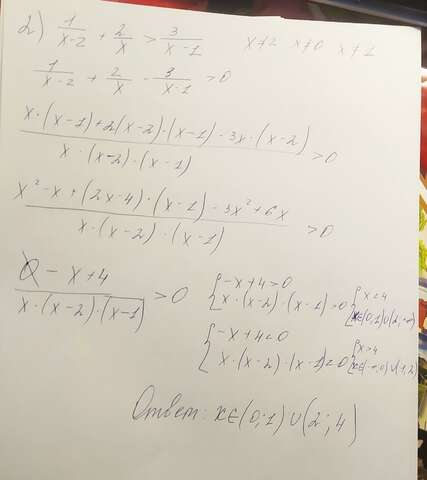 2) 1/(x-2) + 2/x > 3/(x-1)  x≠2  x≠0  x≠1
1/(x-2) + 2/x - 3/(x-1) > 0
(x·(x-1)+2(x-2)·(x-1)-3x·(x-2))/(x·(x-2)·(x-1)) > 0
(x²-x+(2x-4)·(x-1)-3x²+6x)/(x·(x-2)·(x-1)) > 0
(0-x+4)/(x·(x-2)·(x-1)) > 0  { -x+4>0  { x<4
{ x·(x-2)·(x-1)>0  { x∈(0;1)∪(2;+∞)
{ -x+4<0  { x>4
{ x·(x-2)·(x-1)<0  { x∈(-∞;0)∪(1;2)
Ответ: x∈(0;1)∪(2;4)